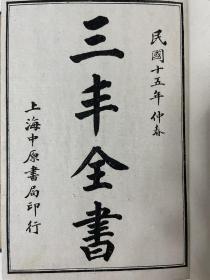 民國十五年仲春
三丰全書
上海中原書局印行